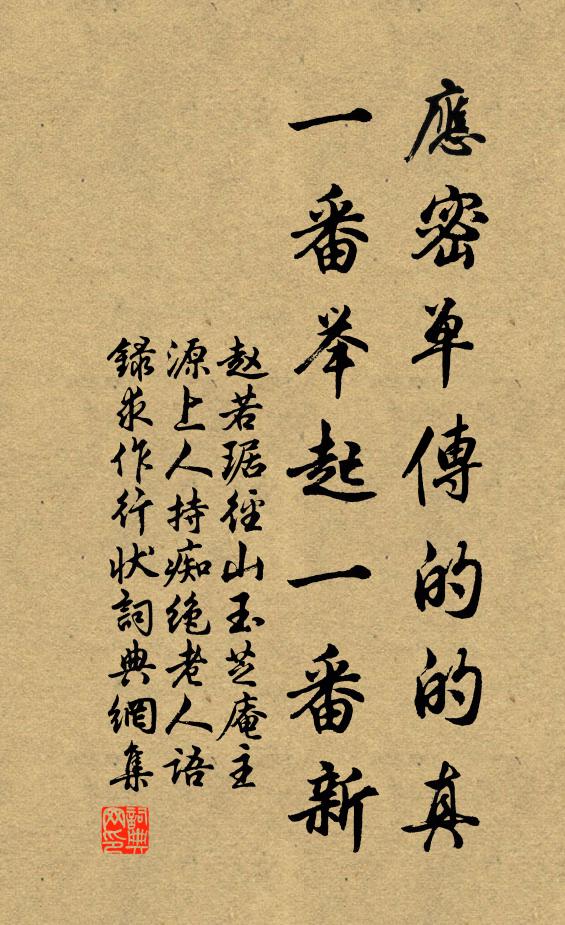 應密单傳的的真
一番举起一番新
赵若琚徑山玉芝庵主
源上人持痴绝老人语
録求作行状詞典網集
詞典網印